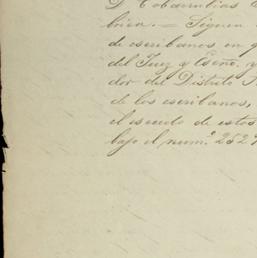 D Cobarrubias
brica. = Siguen
de escribanos en
del Juez y
dor del Distrito
de los escribanos,
el escudo de estos
bajo el num.º 252